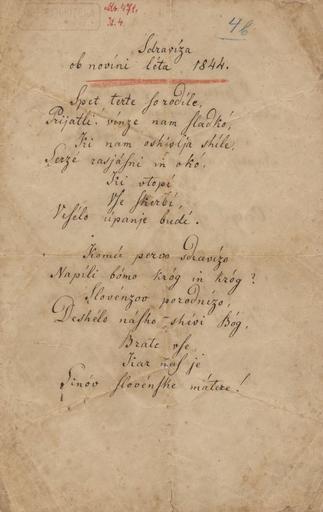 Ms. 471,
N. 4.
4b
Sdravíza
ob novíni léta 1844.
Spet terte so rodíle,
Prijatli! vínze nam sladkó,
Ki nam oshivlja shíle,
Serzé rasjásni in okó,
Ki vtopí
Vse skerbí,
Vesélo úpanje budí.
Komú pervo sdravízo
Napíli bómo króg in króg?
Slovénzov porodnízo,
Deshélo násho shívi Bóg,
Brate vse,
Kar nas je
Sinóv slovénske mátere!